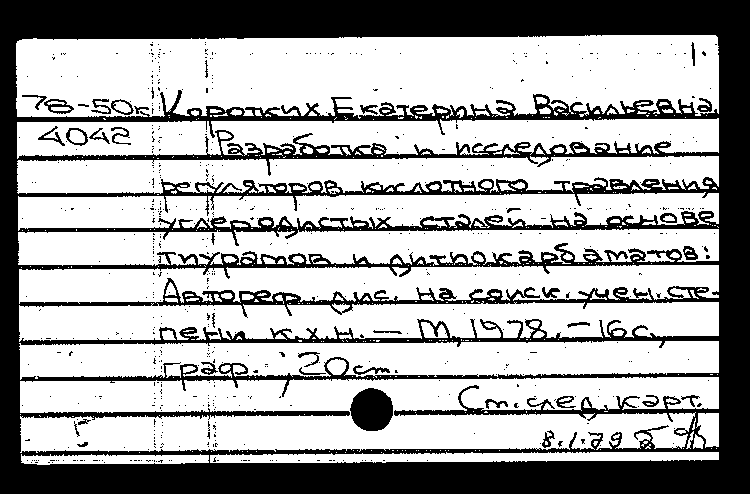 1.
78-50к Коротких, Екатерина Васильевна.
4042 Разработка и исследование
регуляторов кислотного травления
углеродистых сталей на основе
тиурамов и дитиокарбаматов:
Автореф. дис. на соиск. учен. сте-
пени к.х.н. — М, 1978. — 16 с.,
граф. ; 20 см.
См. след. карт.
8.1.79